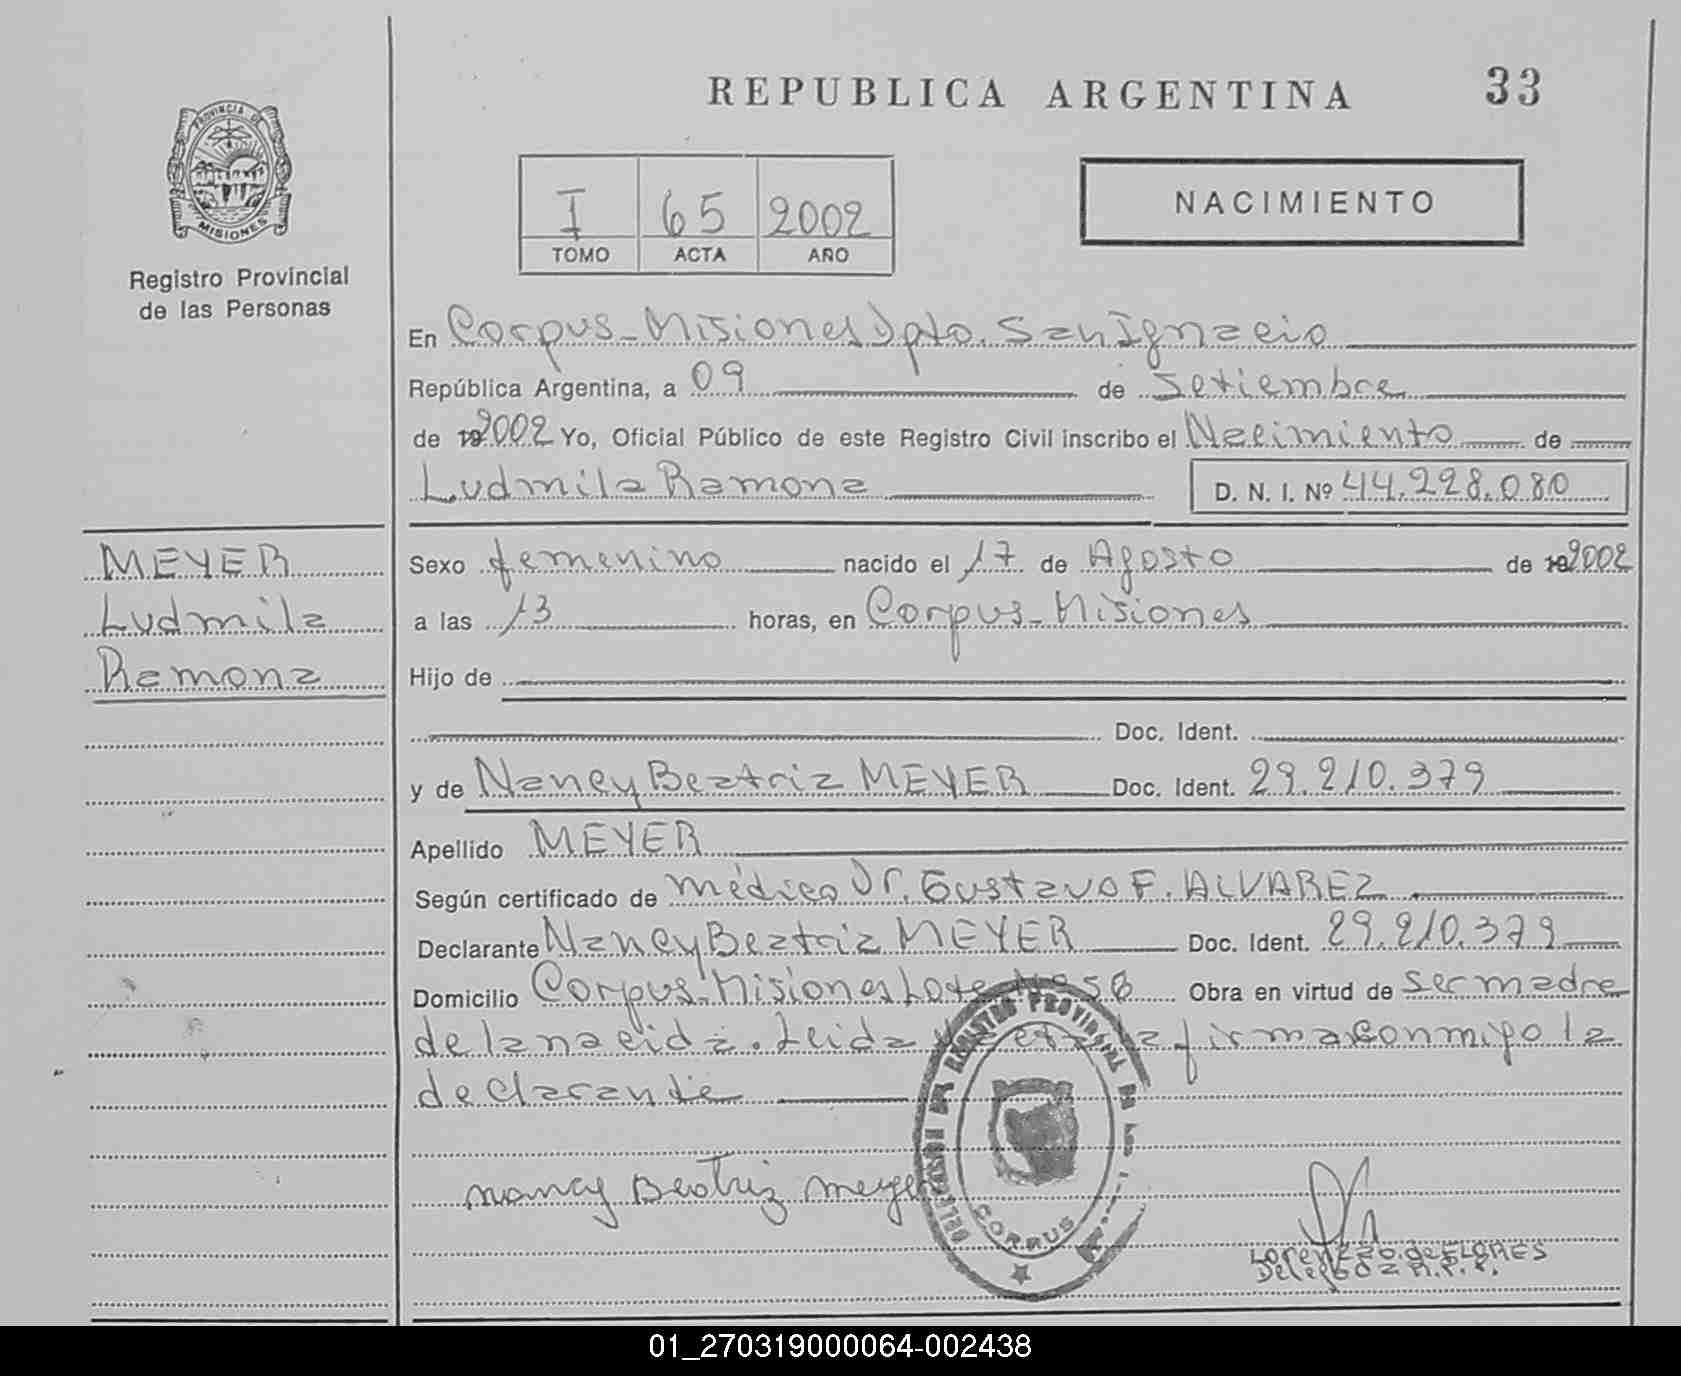 REPUBLICA ARGENTINA 33
PROVINCIA DE
MISIONES
Registro Provincial
de las Personas
I 65 2002
TOMO ACTA AÑO
NACIMIENTO
En Corpus - Misiones Dpto. San Ignacio
República Argentina, a 09 de Setiembre
de 2002 Yo, Oficial Público de este Registro Civil inscribo el Nacimiento de
Ludmila Ramona D. N. I. Nº 44.228.080
MEYER
Ludmila
Ramona
Sexo femenino nacido el 17 de Agosto de 2002
a las 13 horas, en Corpus - Misiones
Hijo de
Doc. Ident.
y de Nancy Beatriz MEYER Doc. Ident. 29.210.379
Apellido MEYER
Según certificado de médico Dr. Gustavo F. ALVAREZ
Declarante Nancy Beatriz MEYER Doc. Ident. 29.210.379
Domicilio Corpus - Misiones Lote Obra en virtud de ser madre
de la nacida. Leida firma conmigo la
declarante
nancy Beatriz meyer
CORPUS
01_270319000064-002438